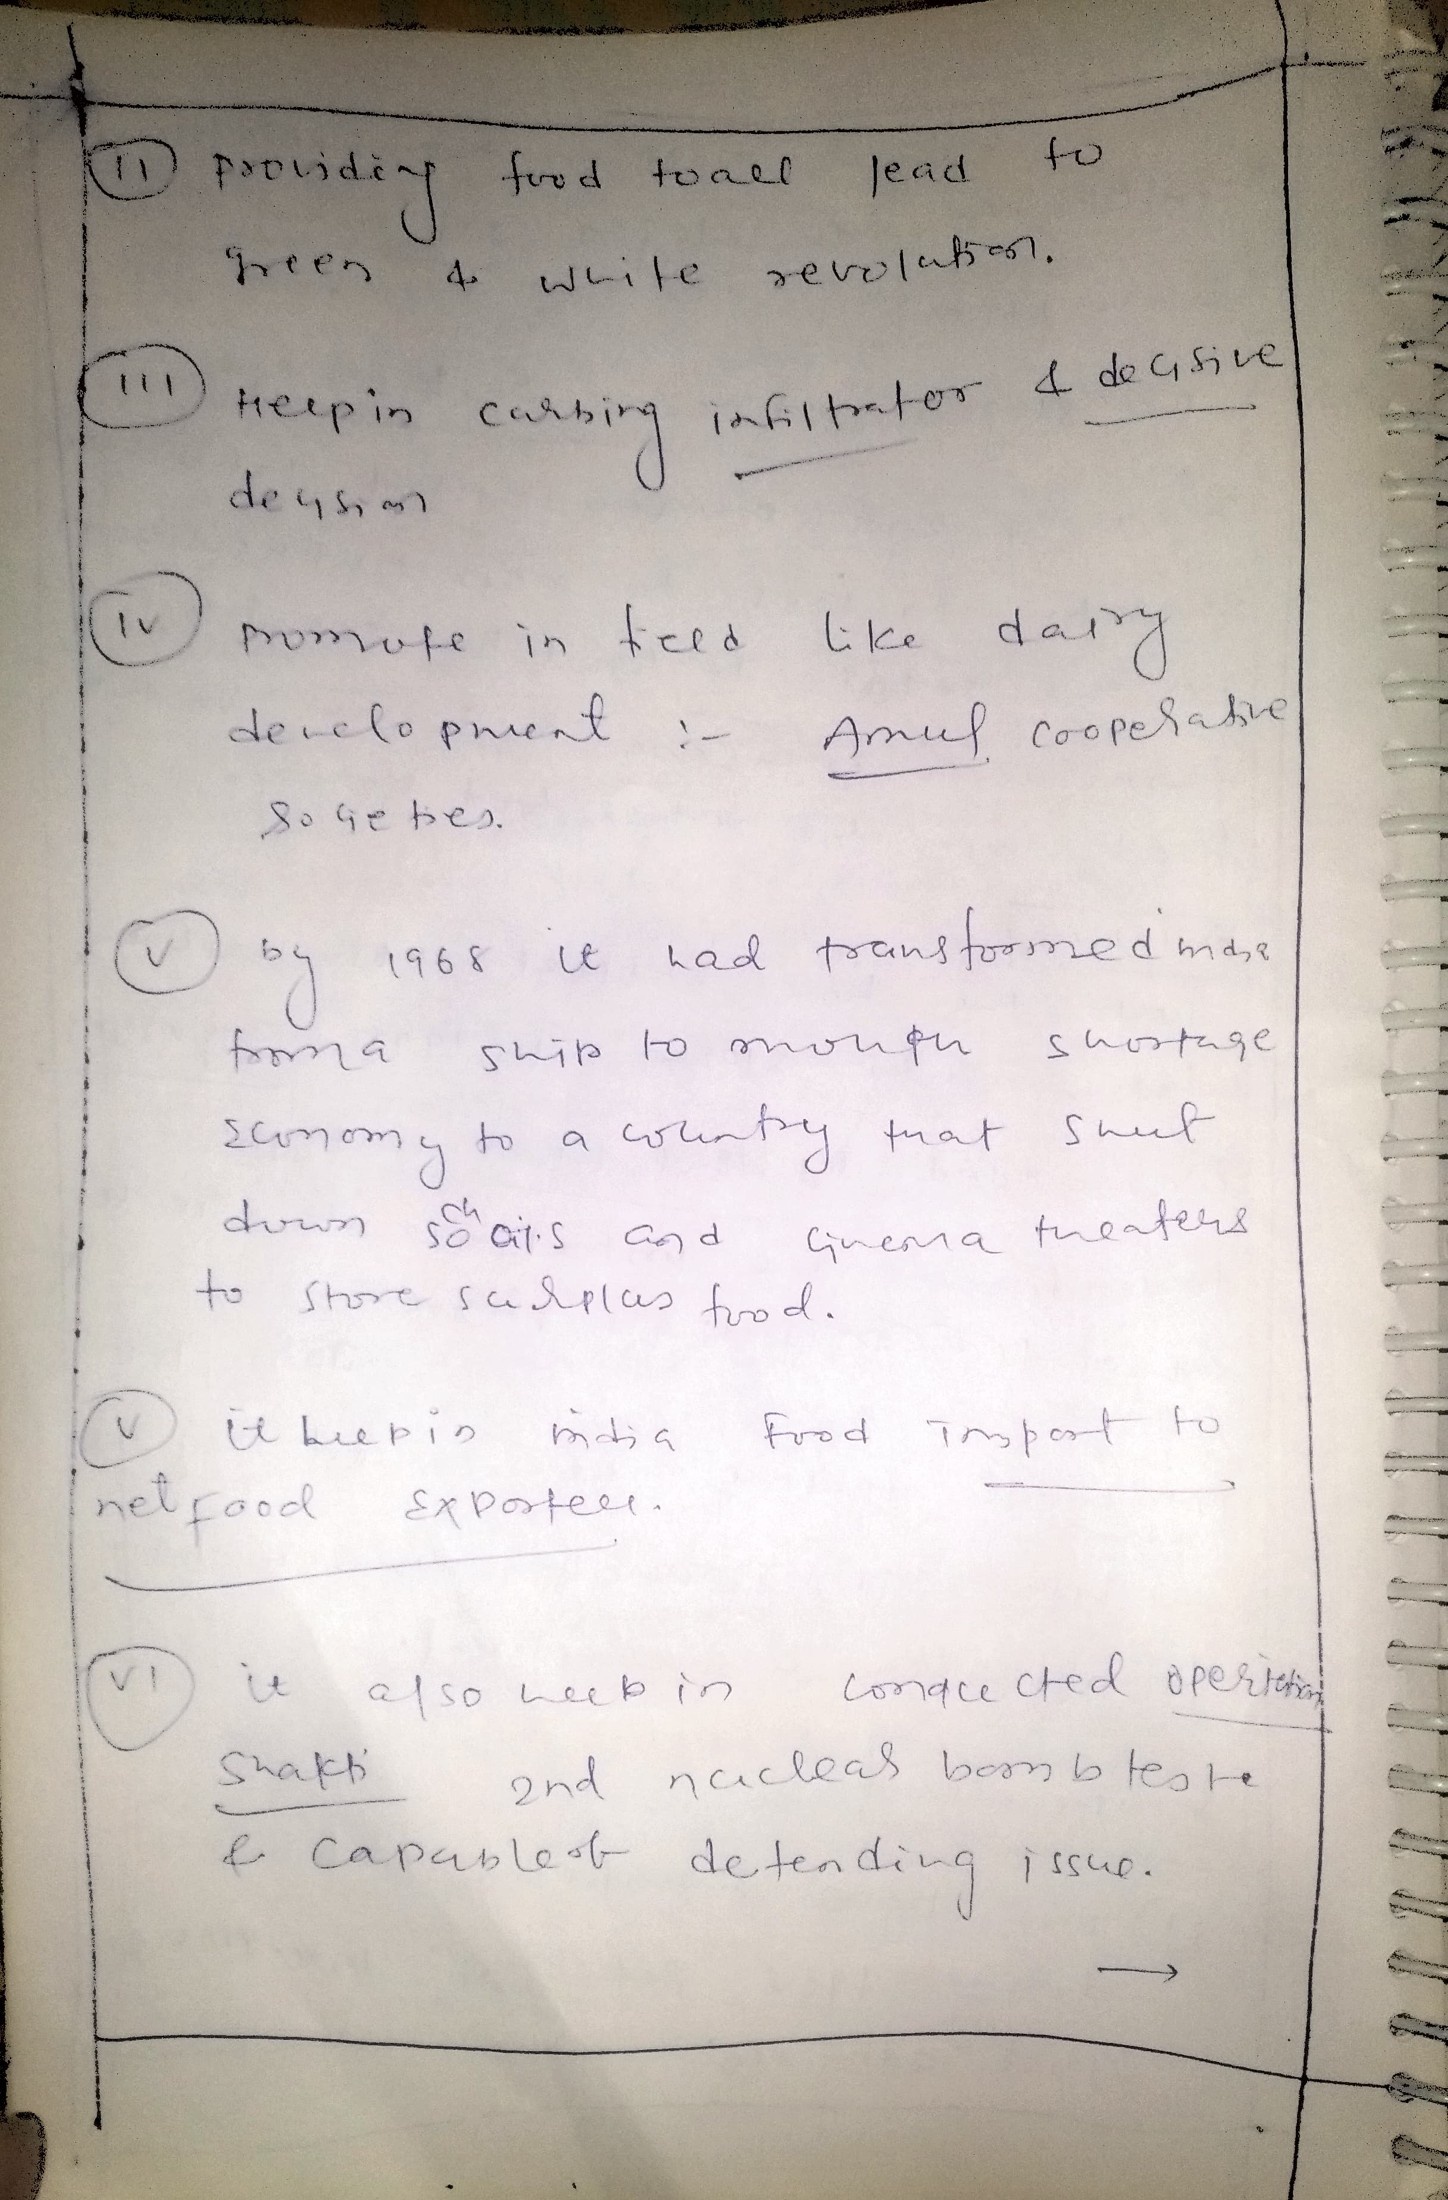 (ii) providing food to all lead to
green & white revolution.
(iii) Help in curbing infiltrator & decisive
decision
(iv) promote in field like dairy
development :- Amul cooperative
societies.
(v) by 1968 it had transformed india
from a ship to mouth shortage
Economy to a country that shut
down schools and cinema theaters
to store surplus food.
(v) it help in india Food Import to
net food Exporter.
(vi) it also help in conducted operation
Shakti 2nd nuclear bomb teste
& capable of defending issue.
→